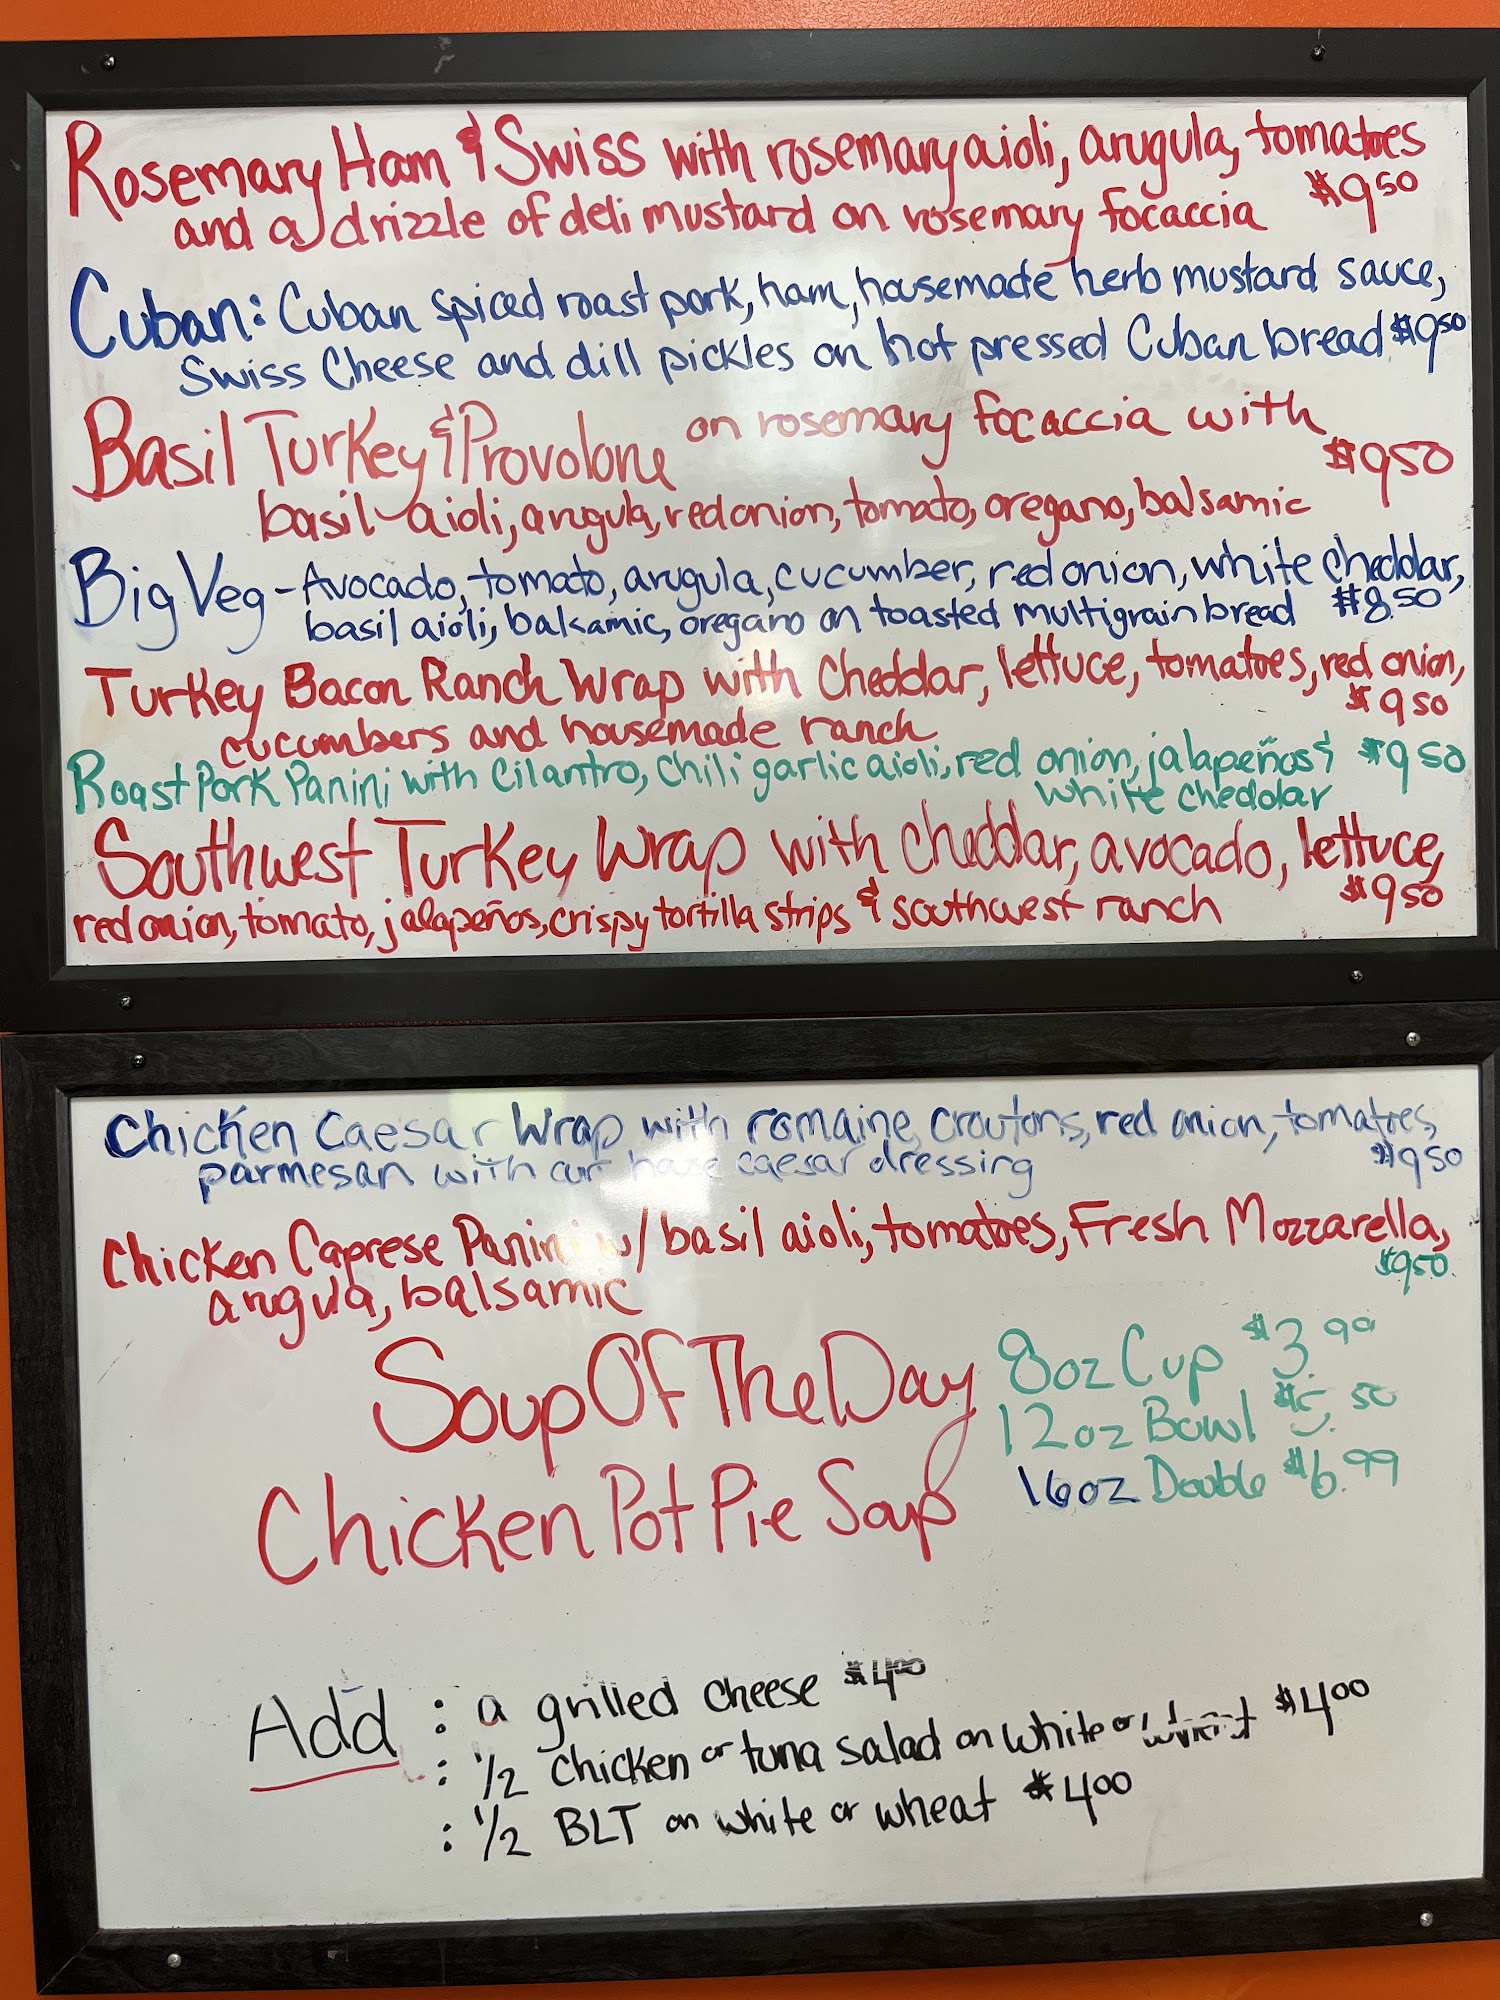 Rosemary Ham & Swiss with rosemary aioli, arugula, tomatoes
and a drizzle of deli mustard on rosemary focaccia $9.50
Cuban: Cuban spiced roast pork, ham, housemade herb mustard sauce,
Swiss Cheese and dill pickles on hot pressed Cuban bread $9.50
Basil Turkey & Provolone on rosemary focaccia with
basil aioli, arugula, red onion, tomato, oregano, balsamic $9.50
Big Veg - Avocado, tomato, arugula, cucumber, red onion, white cheddar,
basil aioli, balsamic, oregano on toasted multigrain bread $8.50
Turkey Bacon Ranch Wrap with Cheddar, lettuce, tomatoes, red onion,
cucumbers and housemade ranch $9.50
Roast Pork Panini with Cilantro, Chili garlic aioli, red onion, jalapeños & $9.50
white cheddar
Southwest Turkey Wrap with cheddar, avocado, lettuce,
red onion, tomato, jalapeños, crispy tortilla strips & southwest ranch $9.50
Chicken Caesar Wrap with romaine, croutons, red onion, tomatoes,
parmesan with our house caesar dressing $9.50
Chicken Caprese Panini w/ basil aioli, tomatoes, Fresh Mozzarella,
arugula, balsamic $9.50
Soup Of The Day
8oz Cup $3.99
12oz Bowl $5.50
16oz Double $6.99
Chicken Pot Pie Soup
Add : a grilled cheese $4.00
: 1/2 chicken or tuna salad on white or wheat $4.00
: 1/2 BLT on white or wheat $4.00